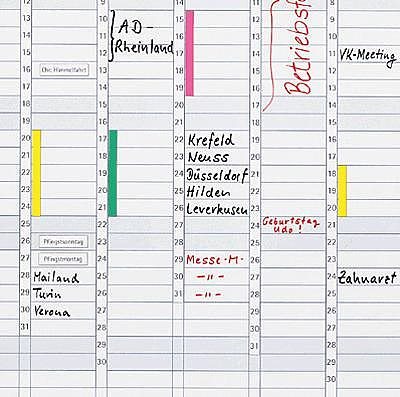 12
13
14
15
16 Chr. Himmelfahrt
17
18
19
20
21
22
23
24
25
26 Pfingstsonntag
27 Pfingstmontag
28 Mailand
29 Turin
30 Verona
31
9
10 AD-
11 Rheinland
12
13
14
15
16
17
18
19
20
21
22
23
24
25
26
27
28
29
30
14
15
16
17
18
19
20
21
22 Krefeld
23 Neuss
24 Düsseldorf
25 Hilden
26 Leverkusen
27
28
29 Messe-M.
30 -"-
31 -"-
11
12
13
14
15
16
17
18
19
20
21
22
23
24 Geburtstag
Udo!
25
26
27
28
29
30
31
8
9
10
11 VK-Meeting
12
13
14
15
16
17
18
19
20
21
22
23
24 Zahnarzt
25
26
27
28
29
30